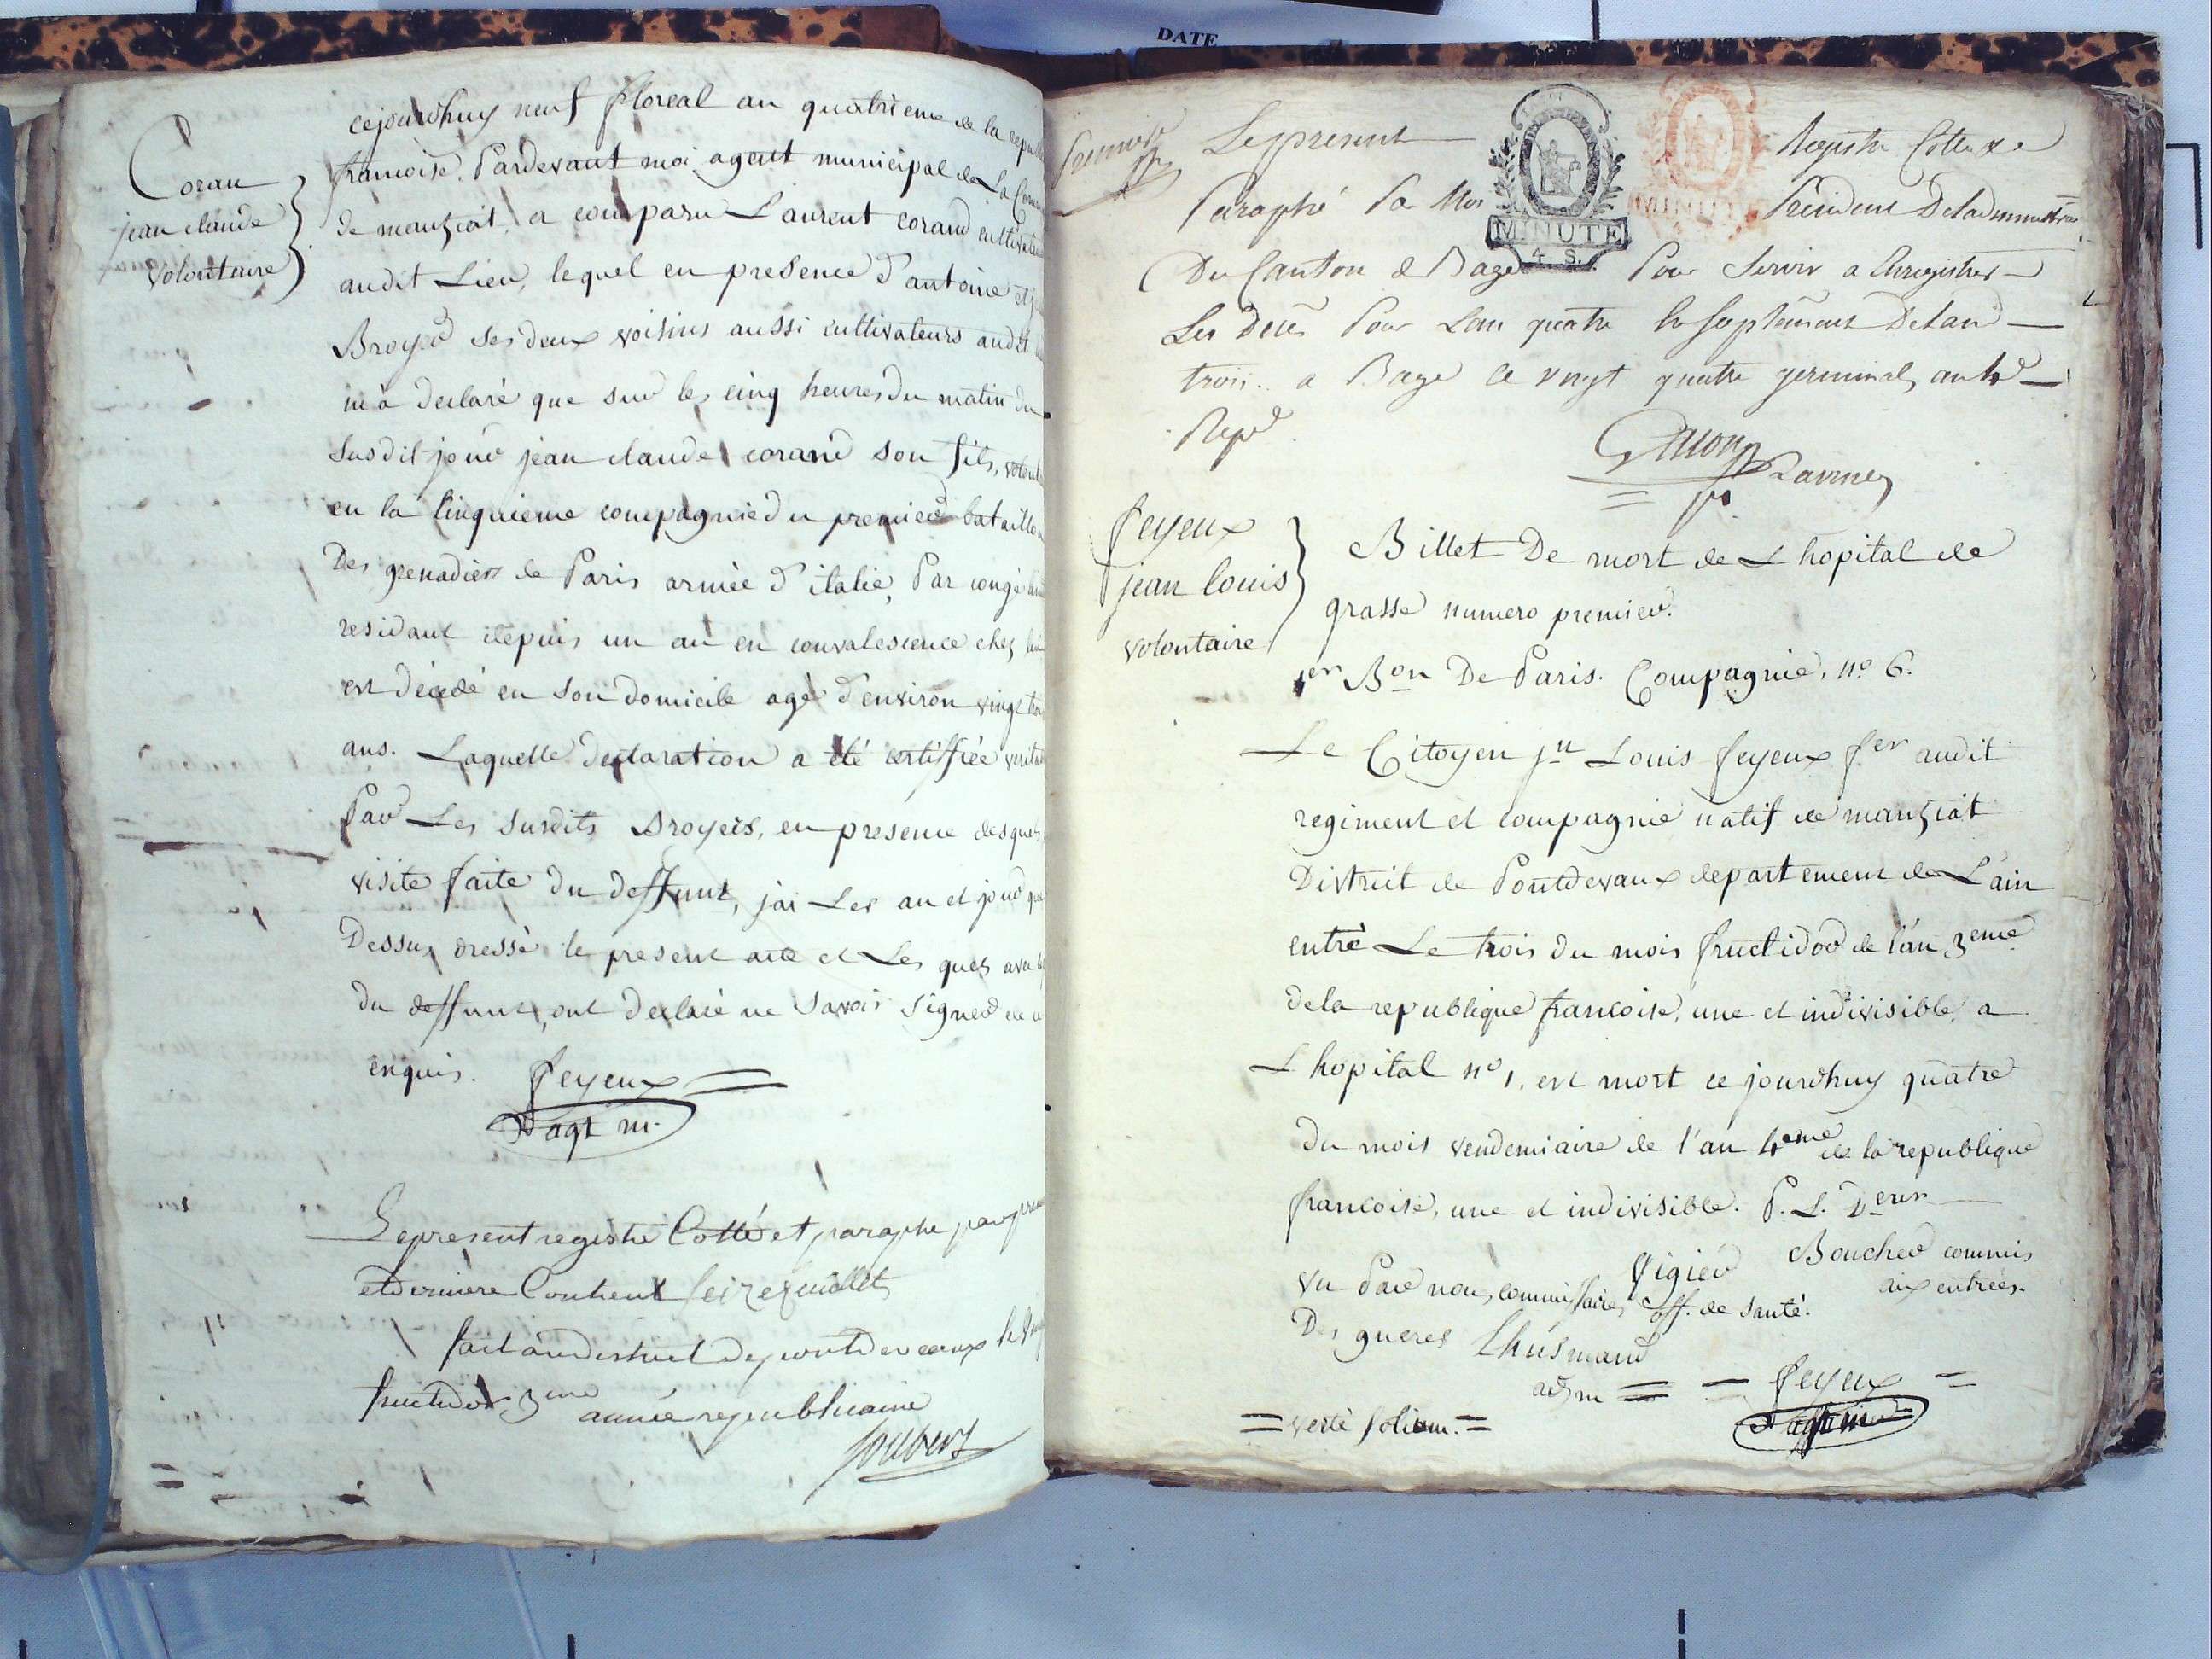 DATE
Coran
jean claude
volontaire
cejourdhuy neuf floreal an quatrieme de la repu
francoise, Pardevant moi agent municipal de La Com
de manziat, a comparu Laurent corand cultivateur
audit Lieu, lequel en presence d'antoine et
Broyed ses deux voisins aussi cultivateurs audit
m'a declaré que sur les cinq heures du matin du
susdit jour jean claude corand son fils, volont
en la Cinquieme compagnie du premier bataillon
Des grenadiers de Paris armée d'italie, Par congé
residant depuis un an en convalescence chez lui
est décédé en son domicile agé d'environ vingt
ans. Laquelle declaration a été certiffiée verita
Par Les susdits Broyers, en presence desquels
visite faite du deffunt, j'ai Les an et jour que
Dessus dressé le present acte et Les quels avec
du deffunt, ont declaré ne savoir signer de ce
enquis. feyeux
agt m.
Le present registre Cotté et paraphe par pre
et derniere Contient seize feuillets
fait au district de pontdevaux le
fructidor 3eme année republicaine
Joubert
premier
Le present Registre Cotte &
Paraphé Pa Moi President De ladministration
MINUTE
MINUTE
4. S.
Du Canton de Bagé Pour Servir a Enregistrer
Les Décès Pour Lan quatre le supplement De lan
trois. a Bagé Le vingt quatre germinal an 4e
Repe
feyeux
jean louis
volontaire
Billet De mort de L hopital de
grasse numero premier.
1er Bon De Paris. Compagnie, no 6.
Le Citoyen jn Louis feyeux fer audit
regiment et compagnie natif de manziat
District de Pontdevaux departement de L'ain
entré Le trois du mois fructidor de l'an 3eme
de la republique francoise, une et indivisible, a
L hopital no 1. est mort ce jourdhuy quatre
du mois vendemiaire de l'an 4eme de la republique
francoise, une et indivisible. P. L. Deren
Vu Par nous commissaires Vigier Boucher commis
Des gueres off. de santé. aux entrées.
Lhusmand
adm feyeux
verte folium. agt m